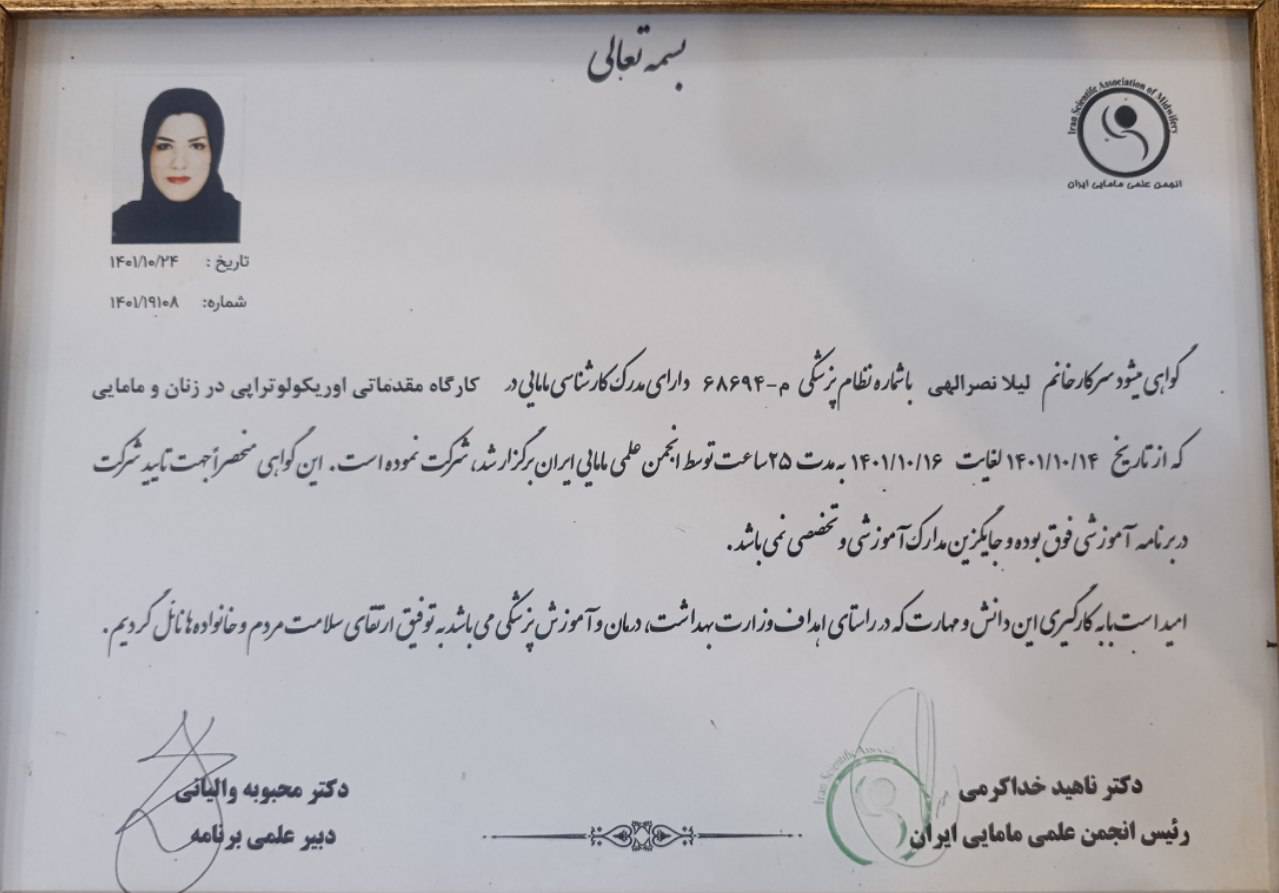 بسمه تعالی
Iran Scientific Association of Midwifery
انجمن علمی مامایی ایران
تاریخ : ۱۴۰۱/۱۰/۲۴
شماره: ۱۴۰۱/۱۹۱۰۸
گواهی میشود سرکار خانم لیلا نصرالهی با شماره نظام پزشکی م-۶۸۶۹۴ دارای مدرک کارشناسی مامایی در کارگاه مقدماتی اوریکولوتراپی در زنان و مامایی
که از تاریخ ۱۴۰۱/۱۰/۱۴ لغایت ۱۴۰۱/۱۰/۱۶ به مدت ۲۵ ساعت توسط انجمن علمی مامایی ایران برگزار شد، شرکت نموده است. این گواهی منحصراً جهت تایید شرکت
در برنامه آموزشی فوق بوده و جایگزین مدارک آموزشی و تخصصی نمی باشد.
امید است با به کارگیری این دانش و مهارت که در راستای اهداف وزارت بهداشت، درمان و آموزش پزشکی می باشد به توفیق ارتقای سلامت مردم و خانواده ها نائل گردیم.
دکتر ناهید خداکرمی
رئیس انجمن علمی مامایی ایران
Iran Scientific
دکتر محبوبه والیانی
دبیر علمی برنامه